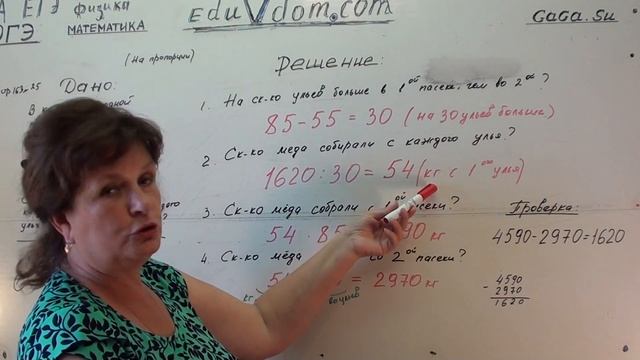 А ЕГЭ физика
ОГЭ
МАТЕМАТИКА
EduVdom.com
GaGa.su
(На пропорции)
Решение:
Дано:
1. На ск-ко ульев больше в 1ой пасеке, чем во 2ой?
85-55=30 (на 30 ульев больше)
2. Ск-ко меда собирали с каждого улья?
1620:30=54 (кг с 1ого улья)
3. Ск-ко мёда собрали с 1ой пасеки?
54 · 85 90 кг
4. Ск-ко мёда со 2ой пасеки?
= 2970 кг
Проверка:
4590-2970=1620
- 4590
2970
1620